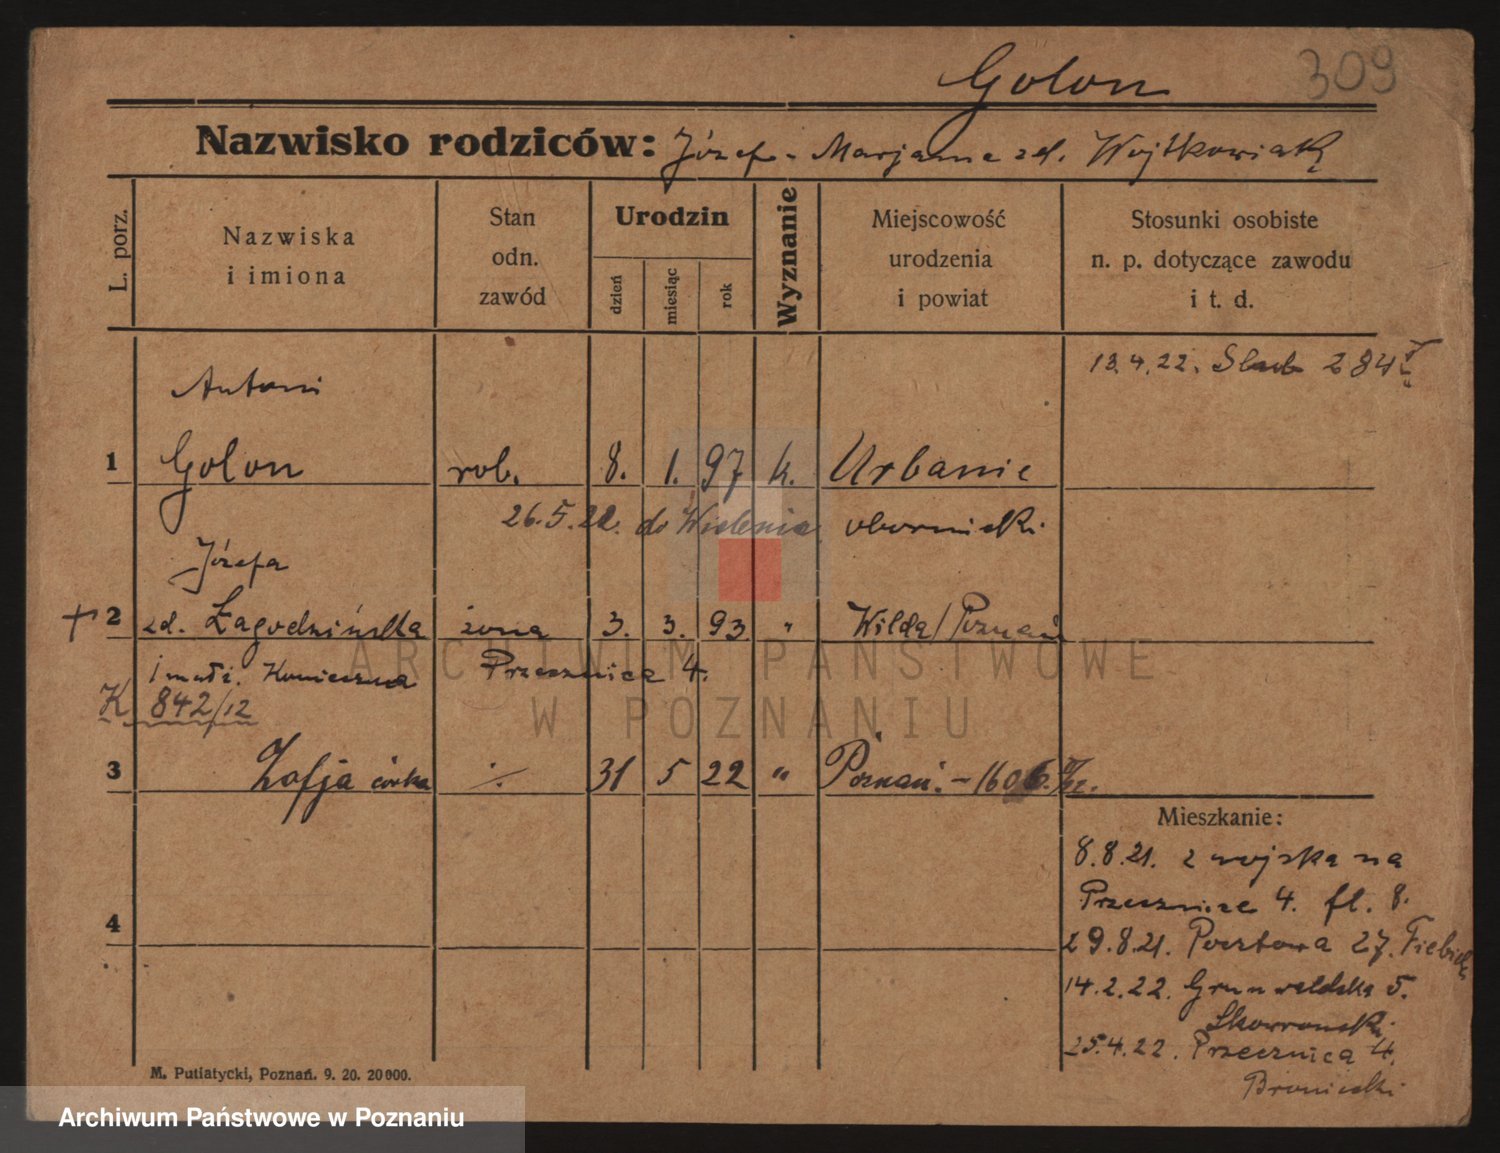 Golon 309
Nazwisko rodziców: Józef - Marjanna zd. Wojtkowiak
L. porz.
Nazwiska
i imiona
Stan
odn.
zawód
Urodzin
dzień
miesiąc
rok
Wyznanie
Miejscowość
urodzenia
i powiat
Stosunki osobiste
n. p. dotyczące zawodu
i t. d.
13.4.22. Slub 284
Antoni
1 Golon rob. 8. 1. 97 k. Urbanie
26.5.22. do Wielenia obornicki
Józefa
+ 2 zd. Łagodzińska żona 3. 3. 93 " Wilda/Poznań
1 małż. Konieczna Przecznica 4.
K 842/12
3 Zofja córka ·/. 31 5 22 " Poznań. - 1606.
Mieszkanie:
8.8.21. z wojska na
Przecznice 4. fl. 8.
4
29.8.21. Pocztowa 27. Fiebich
14.2.22. Grunwaldska 5.
Skowronski
25.4.22. Przecznica 4.
Broniecki
M. Putiatycki, Poznań. 9. 20. 20000.
ARCHIWUM PAŃSTWOWE
W POZNANIU
Archiwum Państwowe w Poznaniu